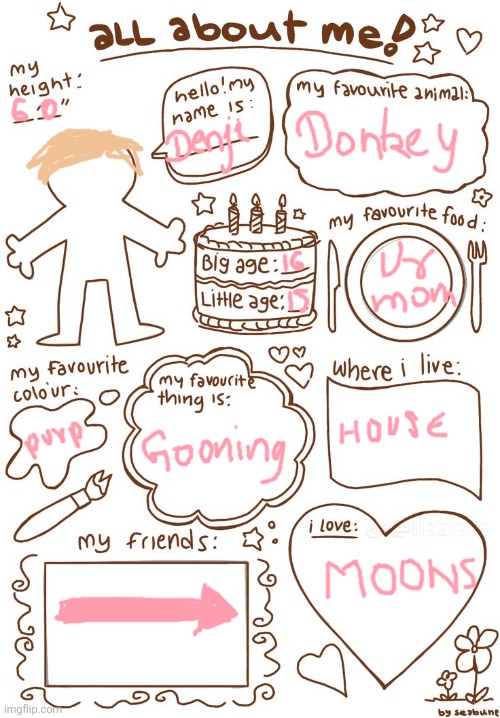 all about me!
my
height:
6 0"
hello! my
name is:
Denji
my favourite animal:
Donkey
Big age: 16
Little age: 15
my favourite food:
Ur
mom
my favourite
colour:
purp
my favourite
thing is:
Gooning
where i live:
HOUSE
my friends:
i love:
MOONS
by seabune
imgflip.com